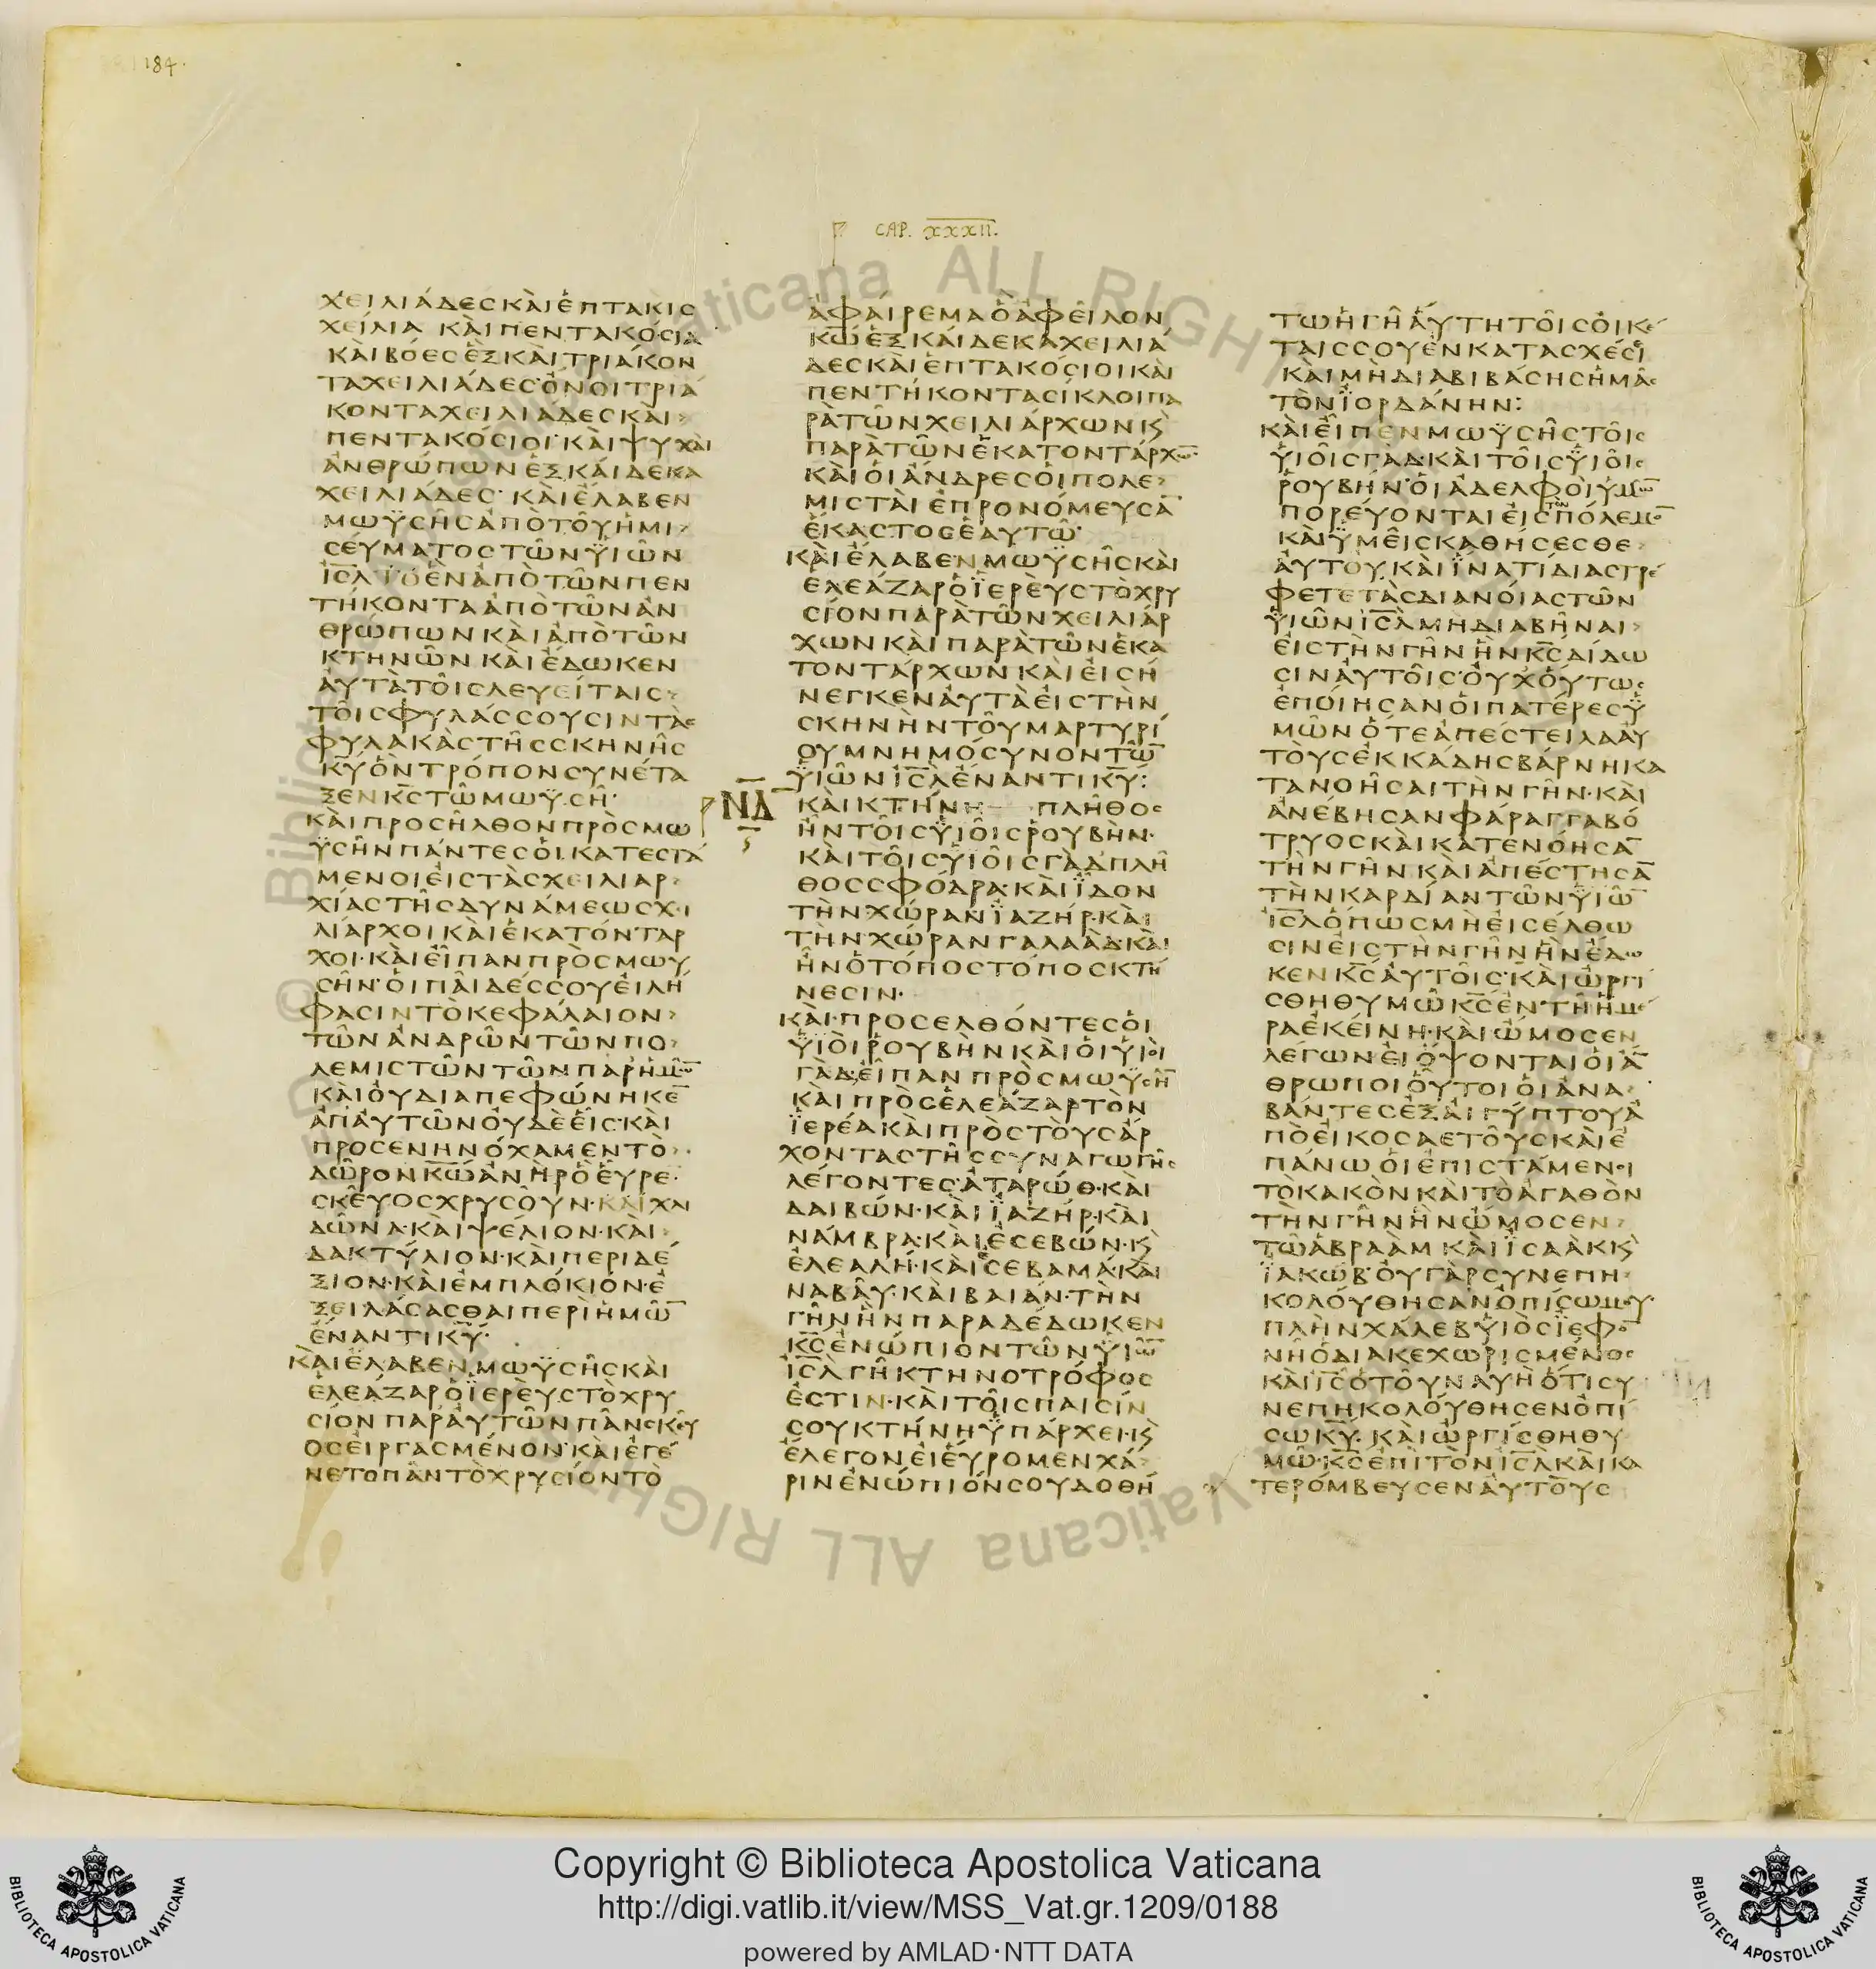 184.
CAP. XXXII.
χειλιάδες καὶ ἑπτακισ
χείλια καὶ πεντακόσια
καὶ βόες ἓξ καὶ τριάκον
τα χειλιάδες· ὄνοι τριά
κοντα χειλιάδες καὶ
πεντακόσιοι· καὶ ψυχαὶ
ἀνθρώπων ἑξ καὶ δεκα
χειλιάδες· καὶ ἔλαβεν
μωϋσῆς ἀπὸ τοῦ ἡμι
σεύματος τῶν ϋἱῶν
ι̅σ̅λ̅ τὸ ἓν ἀπὸ τῶν πεν
τήκοντα ἀπὸ τῶν ἀν
θρώπων καὶ ἀπὸ τῶν
κτηνῶν καὶ ἔδωκεν
αὐτὰ τοῖς λευείταις
τοῖς φυλάσσουσιν τὰς
φυλακὰς τῆς σκηνῆς
κ̅υ̅ ὃν τρόπον συνέτα
ξεν κ̅ς̅ τῶ μωϋσῆ·
καὶ προσῆλθον πρὸς μω
ϋσῆν πάντες οἱ κατεστα
μένοι εἰς τὰς χειλιαρ
χίας τῆς δυνάμεως χει
λίαρχοι καὶ ἑκατόνταρ
χοι· καὶ εἶπαν πρὸς μωυ
σῆν· οἱ παῖδές σου εἰλή
φασιν τὸ κεφάλαιον
τῶν ἀνδρῶν τῶν πο
λεμιστῶν τῶν παρ ἡμῶ̅
καὶ οὐ διαπεφώνηκε̅
ἀπ αὐτῶν οὐδὲ εἷς· καὶ
προσενηνόχαμεν τὸ
δῶρον κ̅ω̅ ἀνὴρ ὃ εὗρε
σκεῦος χρυσοῦν· καὶ χλι
δῶνα· καὶ ψέλιον· καὶ
δακτύλιον· καὶ περιδέ
ξιον· καὶ ἐμπλόκιον· ἐ
ξειλάσασθαι περὶ ἡμῶ̅
ἔναντι κ̅υ̅·
καὶ ἔλαβεν μωϋσῆς καὶ
ἐλεάζαρ ὁ ἱερεὺς τὸ χρυ
σίον παρ αὐτῶν πᾶν σκεῦ
ος εἰργασμένον· καὶ ἐγέ
νετο πᾶν τὸ χρυσίον τὸ
ἀφαίρεμα ὃ ἀφεῖλον
κ̅ω̅ ἑξ καὶ δεκα χειλιά
δες καὶ ἑπτακόσιοι καὶ
πεντήκοντα σίκλοι πα
ρὰ τῶν χειλιάρχων κ̀
παρὰ τῶν ἑκατοντάρχω̅·
καὶ οἱ ἄνδρες οἱ πολε
μισταὶ ἐπρονόμευσα̅
ἕκαστος ἑαυτῶ·
καὶ ἔλαβεν μωϋσῆς καὶ
ελεάζαρ ὁ ϊερεὺς τὸ χρυ
σίον παρὰ τῶν χειλιάρ
χων καὶ παρὰ τῶν ἑκα
τοντάρχων καὶ εἰσή
νεγκεν αὐτὰ εἰς τὴν
σκηνὴν τοῦ μαρτυρί
ου μνημόσυνον τῶ̅
ϋἱῶν ι̅σ̅λ̅ ἔναντι κ̅υ̅:
ΝΔ
καὶ κτήνη πλῆθος
ἦν τοῖς υἱοῖς ῥουβὴν·
καὶ τοῖς υἱοῖς γὰδ πλῆ
θος σφόδρα· καὶ ϊδον
τὴν χώραν ϊαζήρ· καὶ
τὴν χώραν γαλαάδ· καὶ
ἦν ὁ τόπος τόπος κτή
νεσιν·
καὶ προσελθόντες οἱ
ϋἱοὶ ρουβὴν καὶ οἱ υἱοὶ
γὰδ, εἶπαν πρὸς μωϋσῆ̅
καὶ πρὸς ἐλεάζαρ τὸν
ϊερέα καὶ πρὸς τοὺς ἄρ
χοντας τῆς συναγωγῆς
λέγοντες· ἀταρώθ· καὶ
δαιβών· καὶ ϊαζήρ· καὶ
νάμβρα· καὶ ἐσεβών· κ̀
ἐλεαλή· καὶ σεβαμά· καὶ
ναβαῦ· καὶ βαιάν· τὴν
γῆν ἣν παραδέδωκεν
κ̅ς̅ ἐνώπιον τῶν υἱῶ̅
ι̅σ̅λ̅ γῆ κτηνοτρόφος
ἐστιν· καὶ τοῖς παισίν
σου κτήνη ϋπάρχει· κ̀
ἔλεγον εἰ εὕρομεν χά
ριν ἐνώπιόν σου δοθή
τω ἡ γῆ αὕτη τοῖς οἰκέ
ταις σου ἐν κατασχέσι
καὶ μὴ διαβιβάσης ἡμᾶς
τὸν ϊορδάνην:
καὶ εἶπεν μωϋσῆς τοῖς
υἱοῖς γάδ· καὶ τοῖς ϋἱοῖς
ῥουβήν· οἱ ἀδελφοὶ ὑμῶ̅
πορεύονται εἰς τὸν πόλεμο̅
καὶ ϋμεῖς καθήσεσθε
αὐτοῦ, καὶ ϊνατί διαστρέ
φετε τὰς διανοίας τῶν
υἱῶν ι̅σ̅λ̅ μὴ διαβῆναι
εἰς τὴν γῆν ἣν κ̅ς̅ δίδω
σιν αὐτοῖς· οὐχ οὕτως
ἐποίησαν οἱ πατέρες ϋ
μῶν ὅτε ἀπέστειλα αὐ
τοὺς ἐκ κάδης βάρνη κα
τανοῆσαι τὴν γῆν· καὶ
ἀνέβησαν φάραγγα βό
τρυος καὶ κατενόησα̅
τὴν γῆν καὶ ἀπέστησα̅
τὴν καρδίαν τῶν ϋἱῶ̅
ι̅σ̅λ̅ ὅπως μὴ εἰσέλθω
σιν εἰς τὴν γῆν ἣν ἔδω
κεν κ̅ς̅ αὐτοῖς· καὶ ὠργί
σθη θυμῶ κ̅ς̅ ἐν τῆ ἡμέ
ρα ἐκείνη· καὶ ὤμοσεν
λέγων· εἰ ὄψονται οἱ ἄ̅
θρωποι οὗτοι οἱ ἀνα
βάντες ἐξ αἰγύπτου ἀ
πὸ εἰκοσαετοῦς καὶ ἐ
πάνω οἱ ἐπιστάμενοι
τὸ κακὸν καὶ τὸ ἀγαθὸν
τὴν γῆν ἣν ὤμοσεν
τῶ ἀβραὰμ καὶ ϊσαὰκ κ̀
ϊακώβ· οὐ γὰρ συνεπη
κολούθησαν ὀπίσω μου·
πλὴν χάλεβ υἱὸς ϊεφο̅
νὴ ὁ διακεχωρισμένος
καὶ ι̅ς̅ ὁ τοῦ ναυὴ ὅτι συ
νεπηκολούθησεν ὀπί
σω κ̅υ̅. καὶ ὠργίσθη θυ
μῶ· κ̅ς̅ ἐπὶ τὸν ι̅σ̅λ̅ καὶ κα
τερόμβευσεν αὐτοὺς
Copyright © Biblioteca Apostolica Vaticana
http://digi.vatlib.it/view/MSS_Vat.gr.1209/0188
powered by AMLAD·NTT DATA
BIBLIOTECA APOSTOLICA VATICANA
BIBLIOTECA APOSTOLICA VATICANA